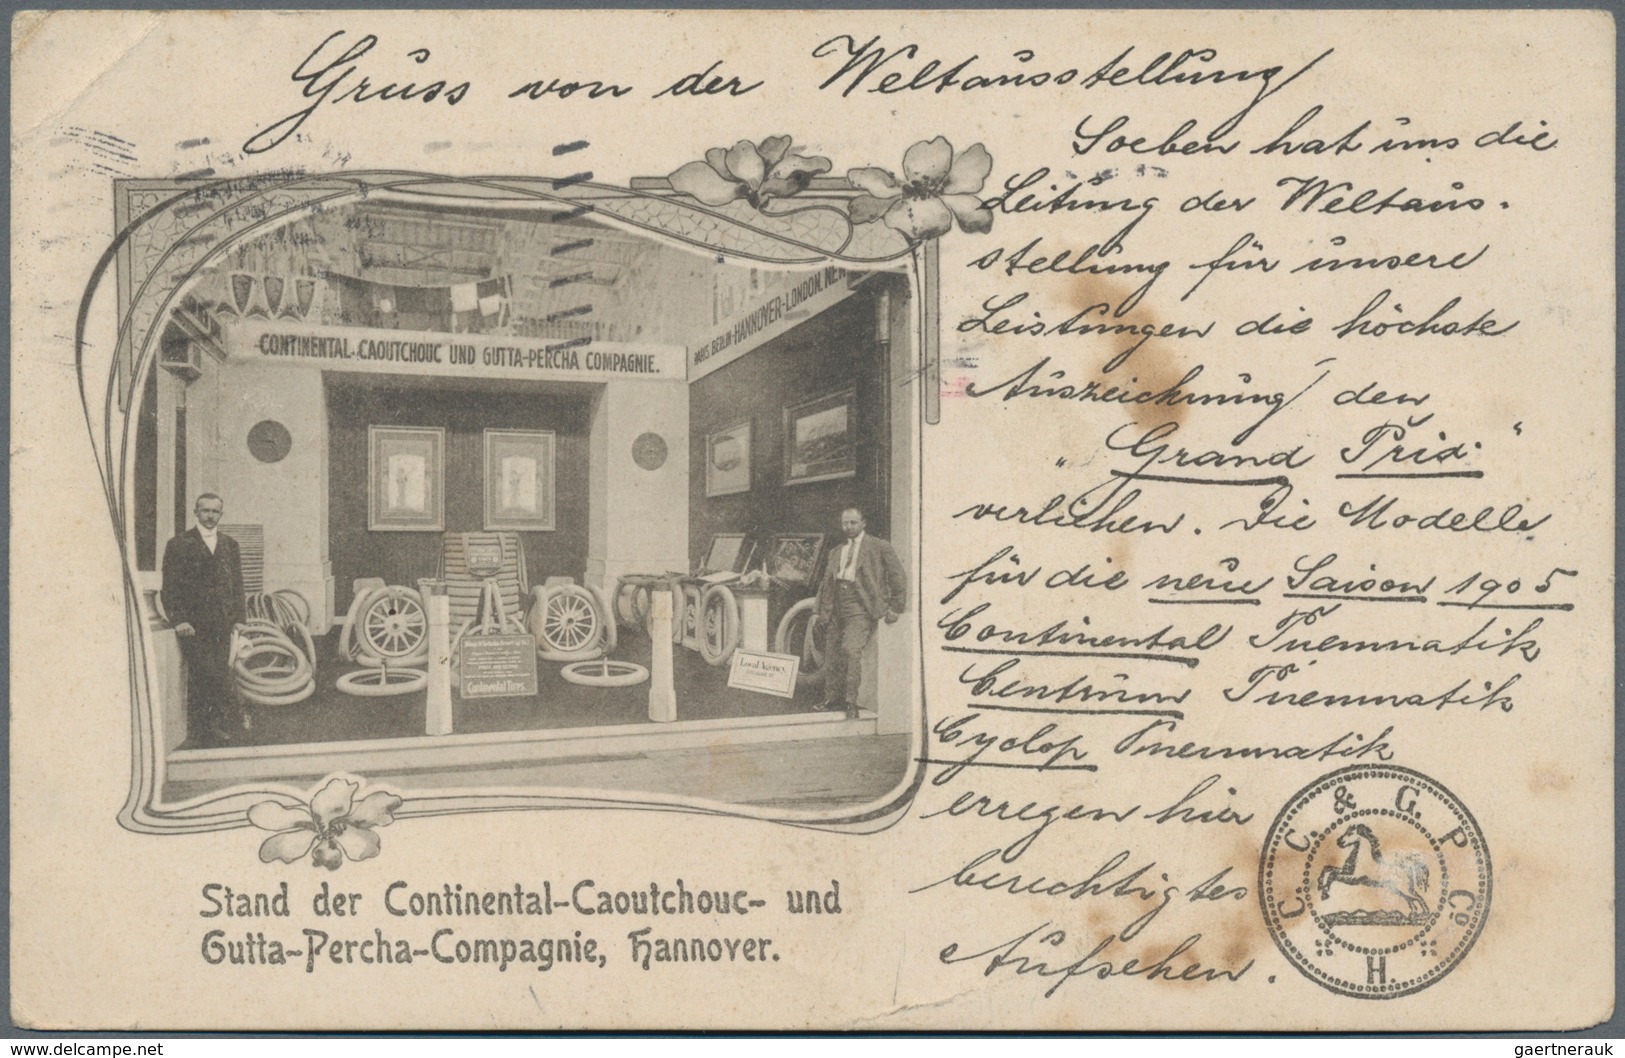 Gruss von der Weltausstellung
Soeben hat uns die
Leitung der Weltaus-
stellung für unsere
Leistungen die höchste
Auszeichnung den
„Grand Prix“
verliehen. Die Modelle
für die neue Saison 1905
Continental Pneumatik
Centrum Pneumatik
Cyclop Pneumatik
erregen hier
berechtigtes
Aufsehen.
CONTINENTAL-CAOUTCHOUC UND GUTTA-PERCHA COMPAGNIE.
PARIS. BERLIN-HANNOVER-LONDON. NEW
Continental Tires
Local Agency
Stand der Continental-Caoutchouc- und
Gutta-Percha-Compagnie, Hannover.
C. C. & G. P. Co
H.
delcampe.net
gaertnerauk